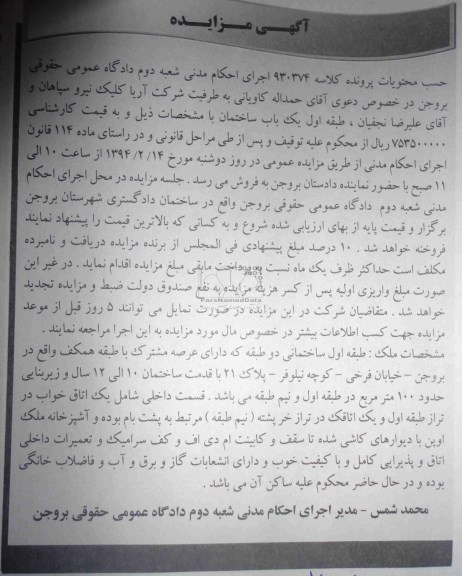 آگهی مـزایـده
حسب محتویات پرونده کلاسه ۹۳۰۳۷۴ اجرای احکام مدنی شعبه دوم دادگاه عمومی حقوقی
بروجن در خصوص دعوی آقای حمداله کاویانی به طرفیت شرکت آریا کلیک نیرو سپاهان و
آقای علیرضا نجفیان ، طبقه اول یک باب ساختمان با مشخصات ذیل و به قیمت کارشناسی
۷۵۳۵۰۰۰۰۰ ریال از محکوم علیه توقیف و پس از طی مراحل قانونی و در راستای ماده ۱۱۴ قانون
اجرای احکام مدنی از طریق مزایده عمومی در روز دوشنبه مورخ ۱۳۹۴/۲/۱۴ از ساعت ۱۰ الی
۱۱ صبح با حضور نماینده دادستان بروجن به فروش می رسد . جلسه مزایده در محل اجرای احکام
مدنی شعبه دوم دادگاه عمومی حقوقی بروجن واقع در ساختمان دادگستری شهرستان بروجن
برگزار و قیمت پایه از بهای ارزیابی شده شروع و به کسانی که بالاترین قیمت را پیشنهاد نمایند
فروخته خواهد شد . ۱۰ درصد مبلغ پیشنهادی فی المجلس از برنده مزایده دریافت و نامبرده
مکلف است حداکثر ظرف یک ماه نسبت به پرداخت مابقی مبلغ مزایده اقدام نماید . در غیر این
صورت مبلغ واریزی اولیه پس از کسر هزینه مزایده به نفع صندوق دولت ضبط و مزایده تجدید
خواهد شد . متقاضیان شرکت در این مزایده در صورت تمایل می توانند ۵ روز قبل از موعد
مزایده جهت کسب اطلاعات بیشتر در خصوص مال مورد مزایده به این اجرا مراجعه نمایند .
مشخصات ملک : طبقه اول ساختمانی دو طبقه که دارای عرصه مشترک با طبقه همکف واقع در
بروجن – خیابان فرخی – کوچه نیلوفر – پلاک ۲۱ با قدمت ساختمان ۱۰ الی ۱۲ سال و زیربنایی
حدود ۱۰۰ متر مربع در طبقه اول و نیم طبقه می باشد . قسمت داخلی شامل یک اتاق خواب در
تراز طبقه اول و یک اتاقک در تراز خر پشته ( نیم طبقه ) مرتبط به پشت بام بوده و آشپزخانه ملک
اوپن با دیوارهای کاشی شده تا سقف و کابینت ام دی اف و کف سرامیک و تعمیرات داخلی
اتاق و پذیرایی کامل و با کیفیت خوب و دارای انشعابات گاز و برق و آب و فاضلاب خانگی
بوده و در حال حاضر محکوم علیه ساکن آن می باشد .
محمد شمس – مدیر اجرای احکام مدنی شعبه دوم دادگاه عمومی حقوقی بروجن